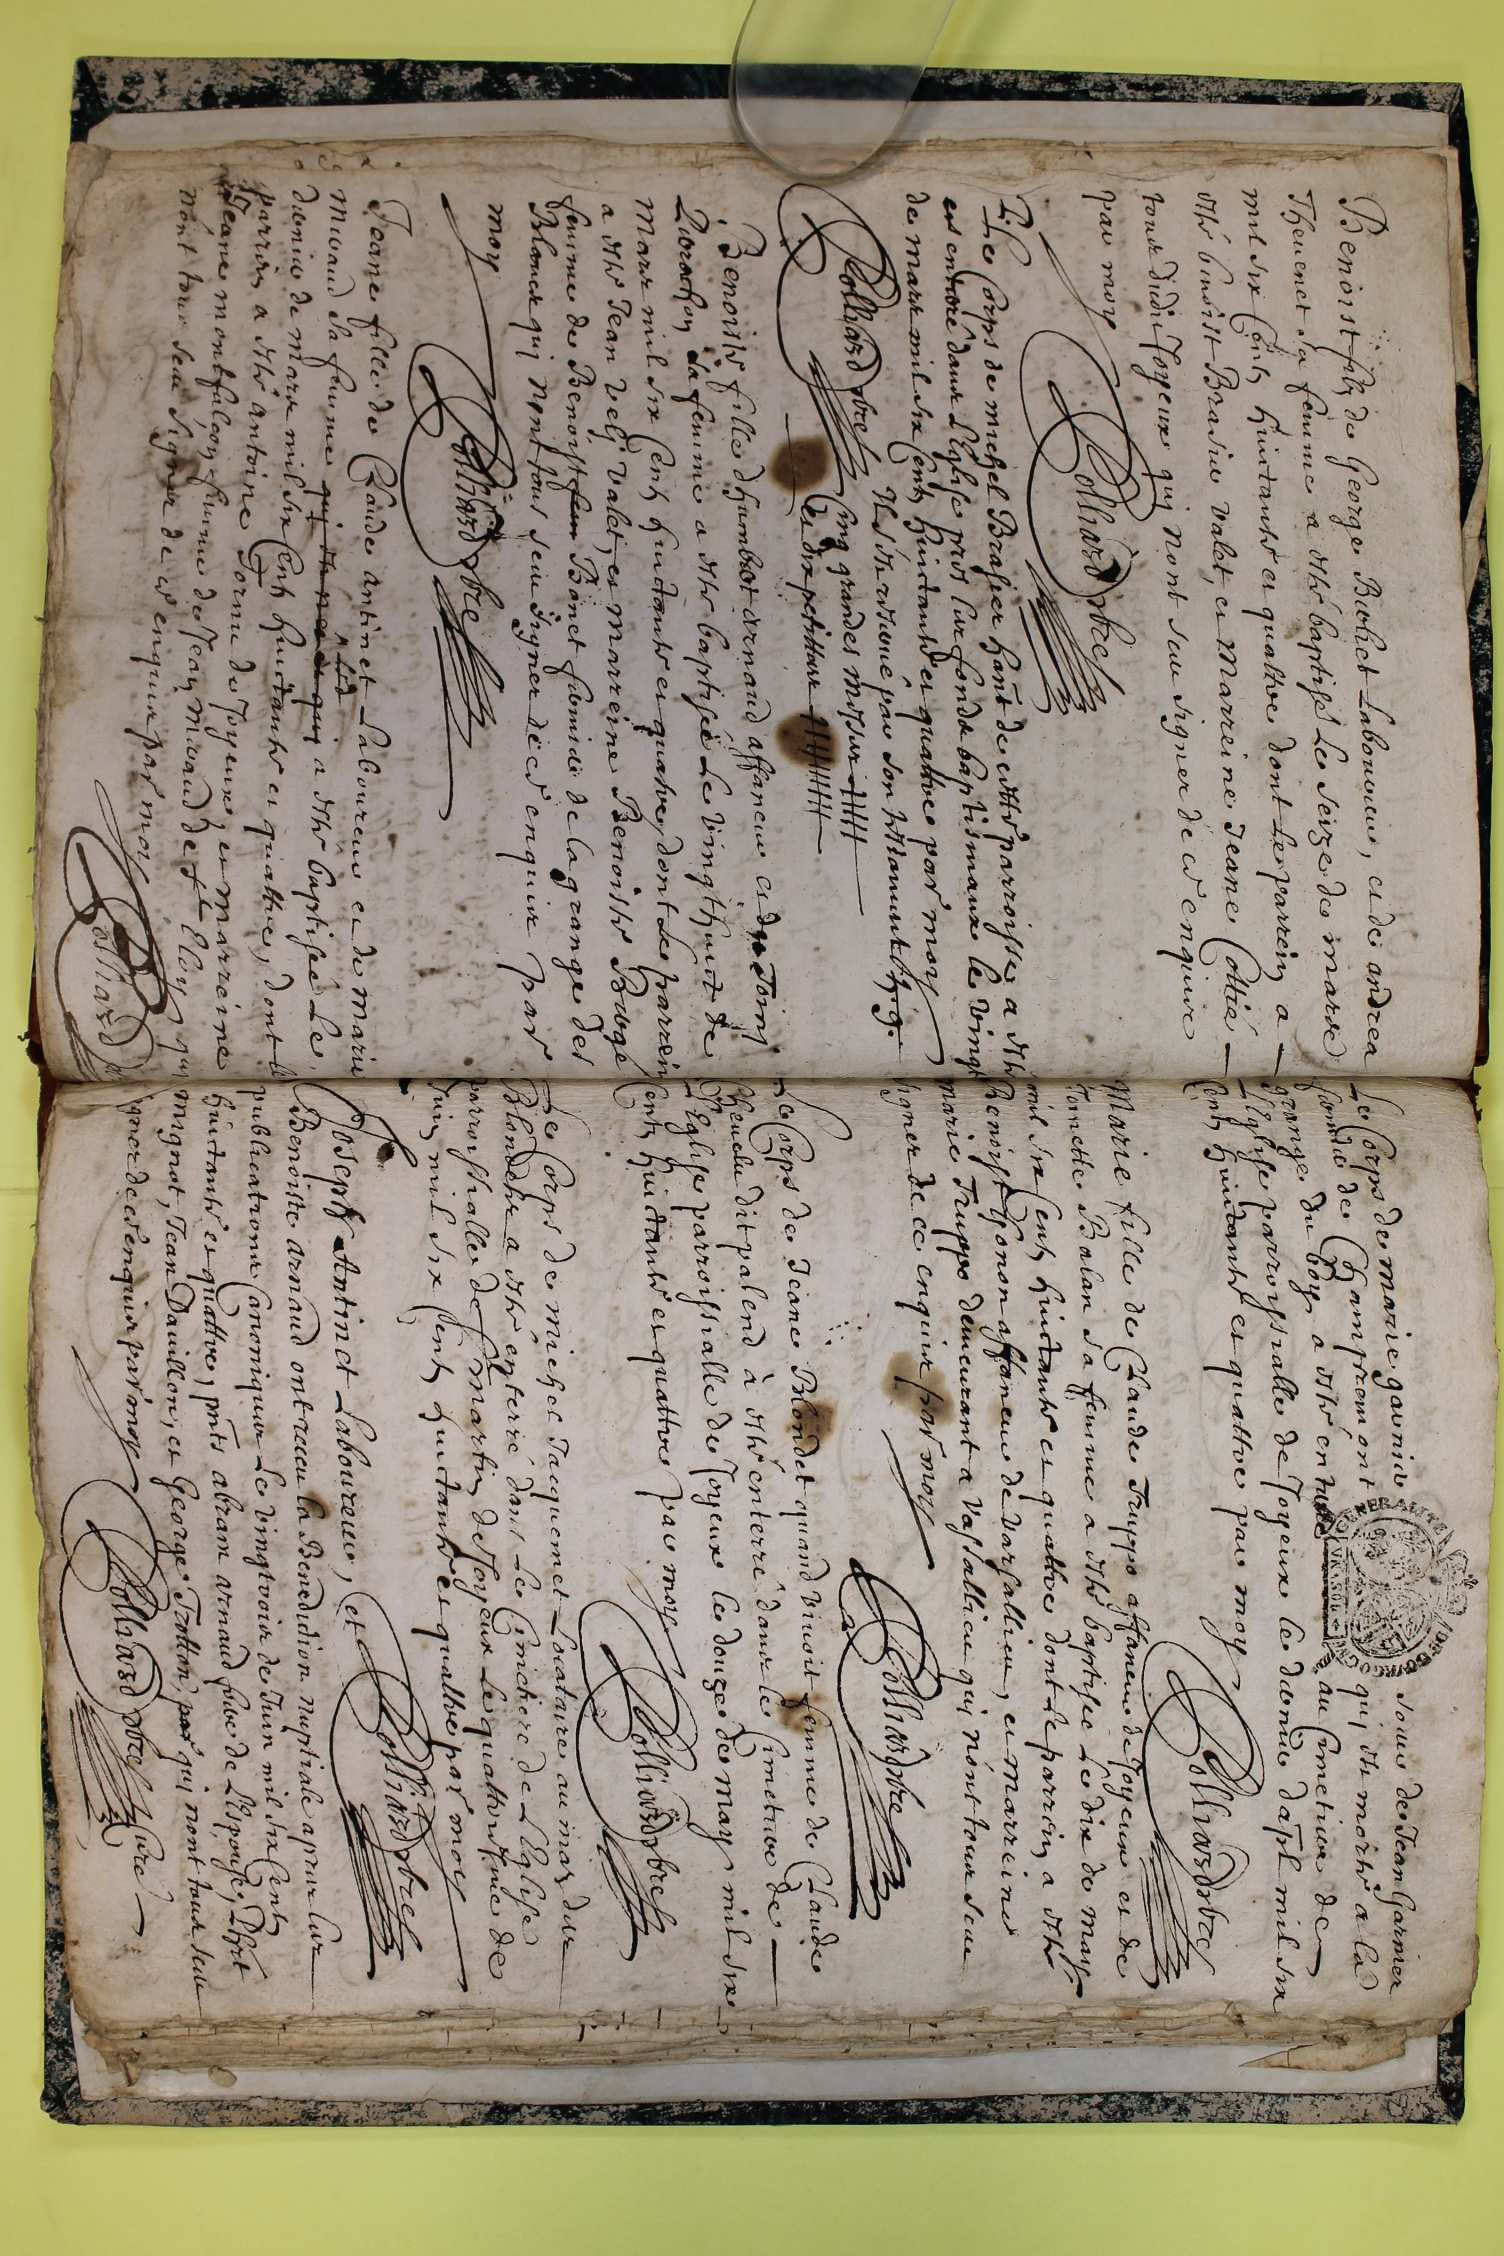 Benoist filz de George Buchet Laboureur, et de andrea
Thevenet sa femme a esté baptisé le seize de mars
mil six Cents huictante et quattre dont le parrein a
esté benoist Brasier valet, et Marreine Jeane Cottié
tous dudit Joyeux qui nont sceu signer de ce enquis
par moy
Colliard pbre
Le Corps de michel Brasier hant de ceste parroisse a esté
enterré dans l'Eglise prés lur fonds baptismaux le vingt
de mars mil six Cents huictante et quattre par moy
Colliard pbre
Cinq grandes messes
et dix petittes
Benoiste fille d'humbert arnaud affaneur et de Toiny
sa femme a esté baptisée Le vingt huict de
Mars mil six Cents huictante et quattre, dont Le parrein
a esté Jean valet, et marreine Benoiste Buage
femme de Benoist Bonet fermier de la grange des
Blancs qui nont tous sceu signer de ce enquis par
moy
Colliard pbre
Jeane fille de Claude antinet Laboureur et de marie
micaud sa femme qui a esté baptisée Le
dernier de mars mil six Cents huictante et quattre, dont le
parrein a esté antoine Dornu de Joyeux, et marreine
Jeane montfalcon femme de Jean micaud de St Eloy qui
nont tous sceu signer de ce enquis par moy
Colliard
Le Corps de marie garnier soeur de Jean Garnier
fermier de Champremont qui est morte a la
grange du boys a esté enterré au Cimetiere de
l'Eglise parroissialle de Joyeux le dernier dapl mil six
Cents huictante et quattre par moy
Colliard pbre
GENERALITE DE BOURGOGNE
Marie fille de Claude Truppo affaneur de Joyeux et de
Toinette Balan sa femme a esté baptisée Le dix de may
mil six Cents huictante et quattre dont Le parrein a esté
Benoist Thomon affaneur de varsallieu, et marreine
marie Truppo demeurant a Vassallieu qui nont tous sceu
signer de ce enquis par moy
Colliard pbre
Le Corps de Jeane Blondet quand vivoit femme de Claude
dit palend à esté enterré dans le Cimetiere de
l'Eglise parroissialle de Joyeux le douze de may mil six
Cents huictante et quattre par moy
Colliard pbre
Le Corps de michel Jacquemet Locataire au mas dur
Blondets a esté enterré dans Le Cimetiere de l'Eglise
parroissialle de St martin de Joyeux Le quattriesme de
Juin mil six Cents huictante et quattre par moy
Colliard pbre
Joseph Antinet Laboureur, et
Benoiste arnaud ont receu la Benediction nuptiale apres lur
publications Canoniques Le vingtroix de Juin mil six Cents
huictante et quattre, pnts abram arnaud pere de L'Espouse,
mignot, Jean Dauillon, et George Trotton, qui nont tous sceu
signer de ce enquis par moy
Colliard pbre Curé